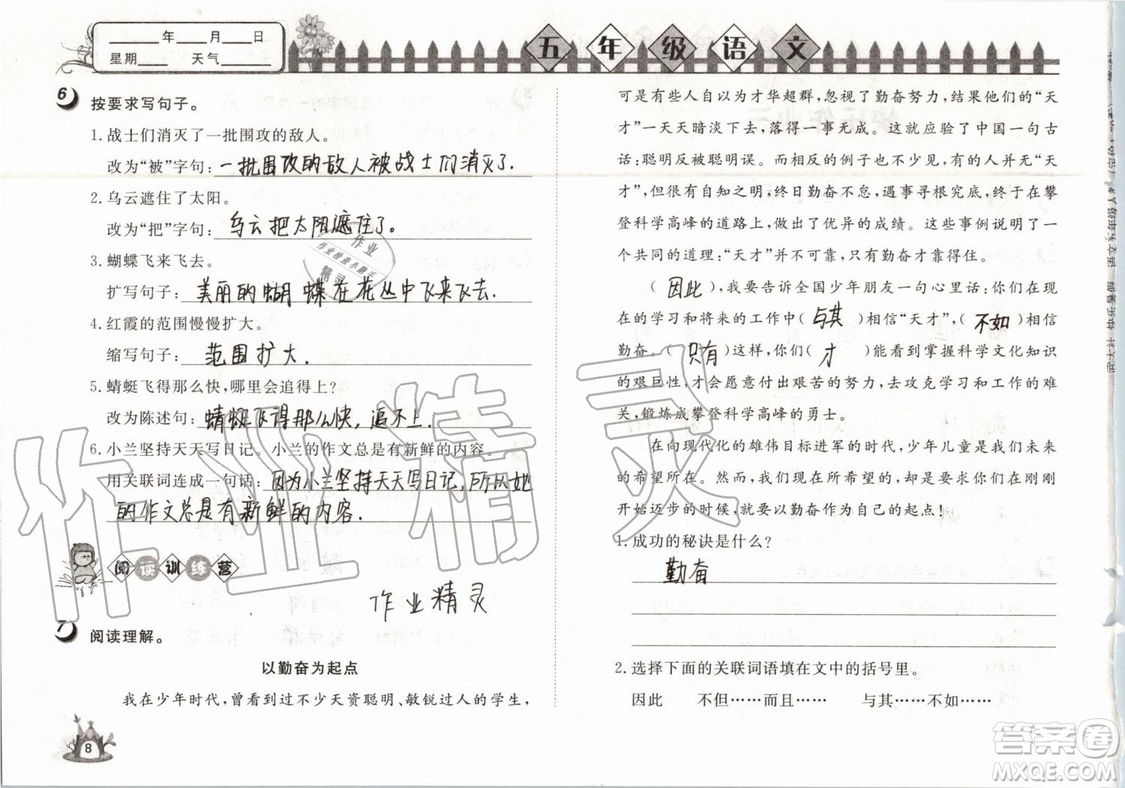 ____年____月____日
星期____ 天气____
五年级语文
6 按要求写句子。
1.战士们消灭了一批围攻的敌人。
改为“被”字句：一批围攻的敌人被战士们消灭了.
2.乌云遮住了太阳。
改为“把”字句：乌云把太阳遮住了。
3.蝴蝶飞来飞去。
扩写句子：美丽的蝴蝶在花丛中飞来飞去.
4.红霞的范围慢慢扩大。
缩写句子：范围扩大.
5.蜻蜓飞得那么快，哪里会追得上？
改为陈述句：蜻蜓飞得那么快，追不上.
6.小兰坚持天天写日记。小兰的作文总是有新鲜的内容。
用关联词连成一句话：因为小兰坚持天天写日记，所以她
的作文总是有新鲜的内容.
阅读训练营
作业精灵
阅读理解。
以勤奋为起点
我在少年时代，曾看到过不少天资聪明、敏锐过人的学生，
8
可是有些人自以为才华超群，忽视了勤奋努力，结果使“天
才”一天天暗淡下去，落得一事无成。这就应验了中国一句古
话：聪明反被聪明误。与此相反的例子也不少见，有些虽无“天
才”，但很有自知之明，终日勤奋不怠，遇事寻根究底，终于在攀
登科学高峰的道路上，做出了优异的成绩。这些事例说明了一
个共同的道理：“天才”并不可靠，只有勤奋才靠得住。
（因此），我要告诉全国少年朋友一句心里话：你们在现
在的学习和将来的工作中（与其）相信“天才”，（不如）相信
勤奋。（只有）你们（才）能看到掌握科学文化知识
的艰巨性，才会愿意付出艰苦的努力，去攻克学习和工作的难
关，锻炼成攀登科学高峰的勇士。
在向现代化的雄伟目标进军的时代，少年儿童是我们未来
的希望所在。然而，我对你们还有所希望的，是希望你们在刚刚
开始迈步的时候，就要以勤奋作为自己的起点！
1.成功的秘诀是什么？
勤奋
2.选择下面的关联词语填在文中的括号里。
因此 不但……而且…… 与其……不如……
作业精灵
答案圈
MXQE.COM